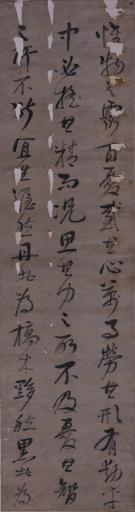 惟物之靈百憂感其心萬事勞其形有動乎
中必搖其精而況思其力之所不及憂其智
之所不能宜其渥然丹者為槁木黟然黑者為